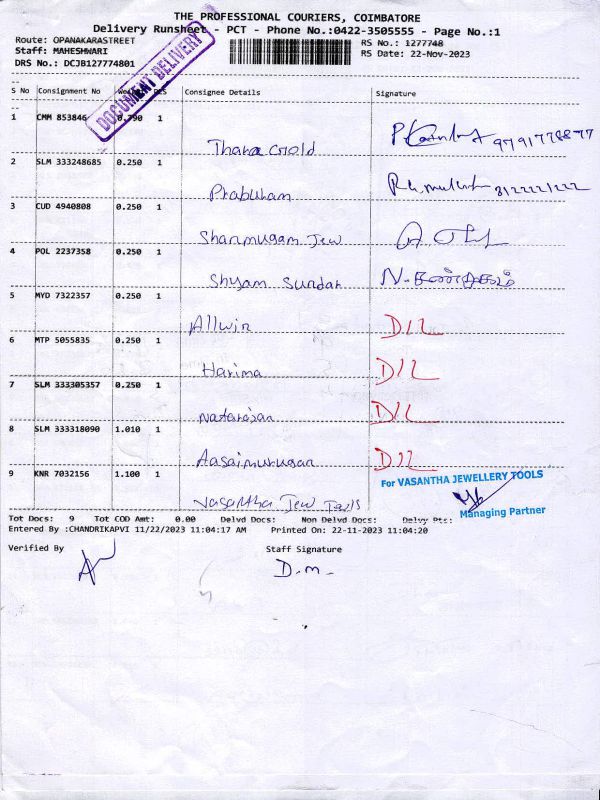 THE PROFESSIONAL COURIERS, COIMBATORE
Delivery Runsheet - PCT - Phone No.:0422-3505555 - Page No.:1
Route: OPANAKARASTREET
RS No.: 1277748
Staff: MAHESHWARI
RS Date: 22-Nov-2023
DRS No.: DCJB127774801
DOCUMENT DELIVERY
S No Consignment No PCS Consignee Details Signature
1 CMM 853846 0.790 1
Thara Gold 9791778877
2 SLM 333248685 0.250 1
Prabuham
3 CUD 4940808 0.250 1
Shanmugam Jew
4 POL 2237358 0.250 1
Shyam Sundar
5 MYD 7322357 0.250 1
Allwin D/L
6 MTP 5055835 0.250 1
Harima D/L
7 SLM 333305357 0.250 1
Natarajan D/L
8 SLM 333318090 1.010 1
Aasaimurugan D/L
9 KNR 7032156 1.100 1
For VASANTHA JEWELLERY TOOLS
Vasantha Jew Tools
Managing Partner
Tot Docs: 9 Tot COD Amt: 0.00 Delvd Docs: Non Delvd Docs: Delvy Ptc:
Entered By :CHANDRIKAPVI 11/22/2023 11:04:17 AM Printed On: 22-11-2023 11:04:20
Verified By Staff Signature
D.m.